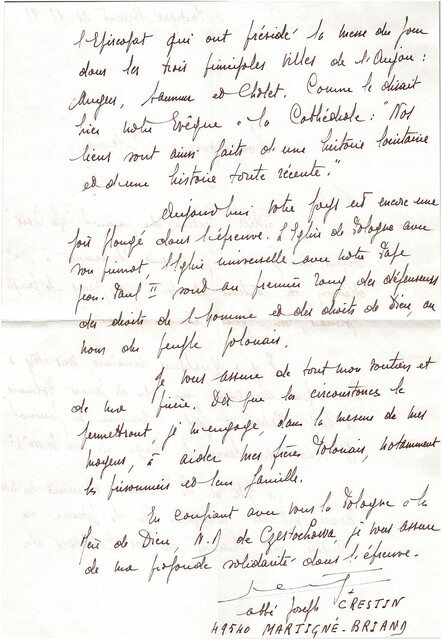 l'Episcopat qui ont présidé la messe du jour
dans les trois principales villes de l'Anjou :
Angers, Saumur et Cholet. Comme le disait
hier notre Evêque à la Cathédrale : "Nos
liens sont ainsi faits d'une histoire lointaine
et d'une histoire toute récente."
Aujourd'hui votre pays est encore une
fois plongé dans l'épreuve. L'Eglise de Pologne avec
son primat, l'Eglise universelle avec notre Pape
Jean-Paul II sont au premier rang des défenseurs
des droits de l'homme et des droits de Dieu, au
nom du peuple polonais.
Je vous assure de tout mon soutien et
de ma prière. Dès que les circonstances le
permettront, je m'engage, dans la mesure de mes
moyens, à aider mes frères Polonais, notamment
les prisonniers et leur famille.
En confiant avec vous la Pologne à la
Mère de Dieu, N.D de Czestochowa, je vous assure
de ma profonde solidarité dans l'épreuve.
abbé Joseph CRESTIN
49540 MARTIGNÉ-BRIAND